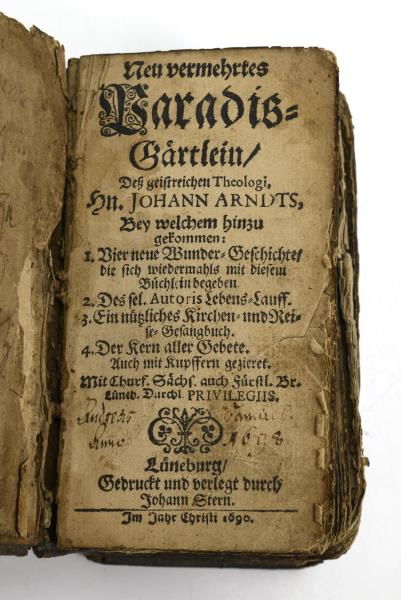 Neu vermehrtes
Paradis-
Gärtlein/
Deß geistreichen Theologi,
Hn. JOHANN ARNDTS,
Bey welchem hinzu
gekommen:
1. Vier neue Wunder-Geschichte/
die sich wiedermahls mit diesem
Büchlein begeben
2. Des sel. Autoris Lebens-Lauff.
3. Ein nützliches Kirchen- und Rei-
se-Gesangbuch.
4. Der Kern aller Gebete.
Auch mit Kupffern gezieret.
Mit Churf. Sächs. auch Fürstl. Br.
Lüneb. Durchl. PRIVILEGIIS.
Anno
Lüneburg/
Gedruckt und verlegt durch
Johann Stern.
Im Jahr Christi 1690.